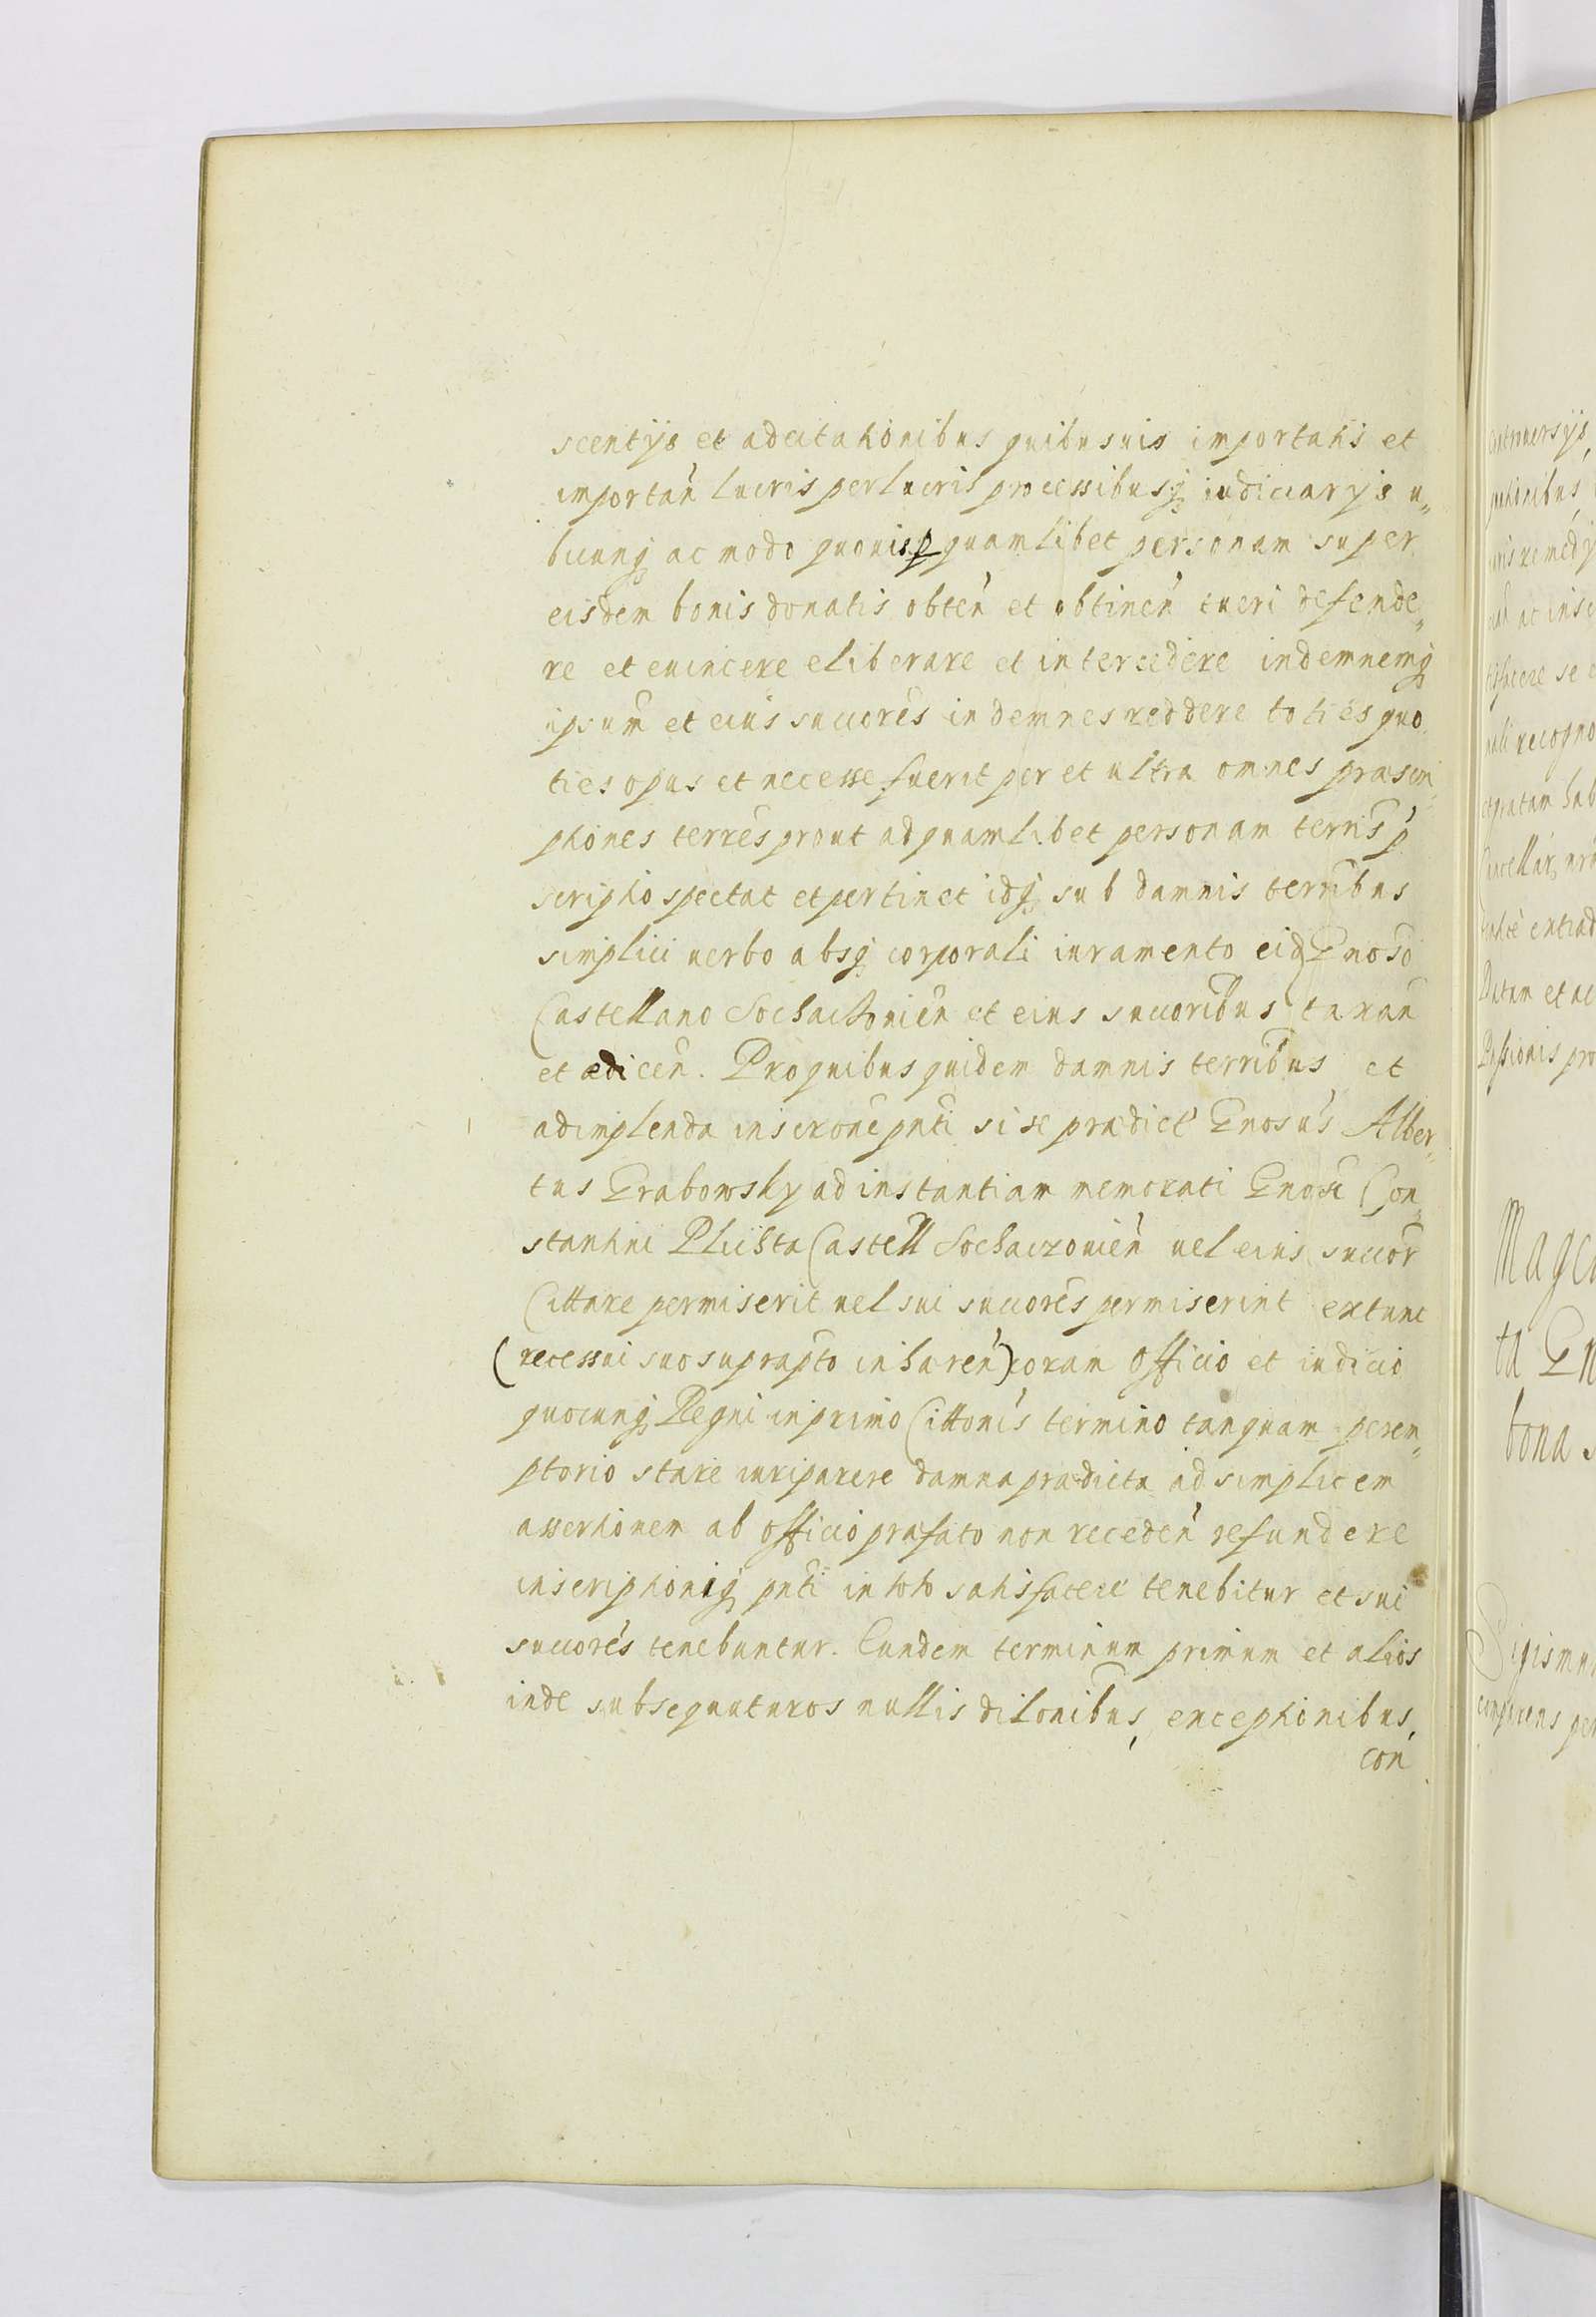 scentijs et adcitationibus quibusuis importatis et
importan̄ lucris perlucris processibusq̨ iudiciarys u„
bicunq̨ ac modo quouis ꝑ quamlibet personam super
eisdem bonis donatis obten̄ et obtinen̄ tueri defende„
re et euincere eliberare et intercedere indemnemq̨
ipsum et eius succores indemnes reddere toties quo„
ties opus et necesse fuerit per et ultra omnes præscri„
ptiones terres prout ad quamlibet personam terris p̄
scriptio spectat et pertinet idq̨ sub damnis terribus
simplici uerbo absq̨ corporali iuramento eid̄ Gnoso
Castellano Sochaczouien̄ et eius succoribus taxan̄
et ædicen̄. Pro quibus quidem damnis terribus et
adimplenda inscrone pnti si se prædict' Gnosus Alber„
tus Grabowsky ad instantiam memorati Gnosi Con„
stantini Plichta Castell Sochaczouien̄ uel eius succor
Cittare permiserit uel sui succores permiserint extunc
(recessui suo suprapto inhæren̄) coram officio et iudicio
quocunq̨ Regni in primo Cittonis termino tanquam perem„
ptorio stare iuri parere damna prædicta ad simplicem
assertionem ab officio præfato non receden̄ refundere
inscriptioniq̨ pnti in toto satisfacere tenebitur et sui
succores tenebuntur. Eundem terminum primum et alios
inde subsequuturos nullis dilonibus, exceptionibus,
con̄